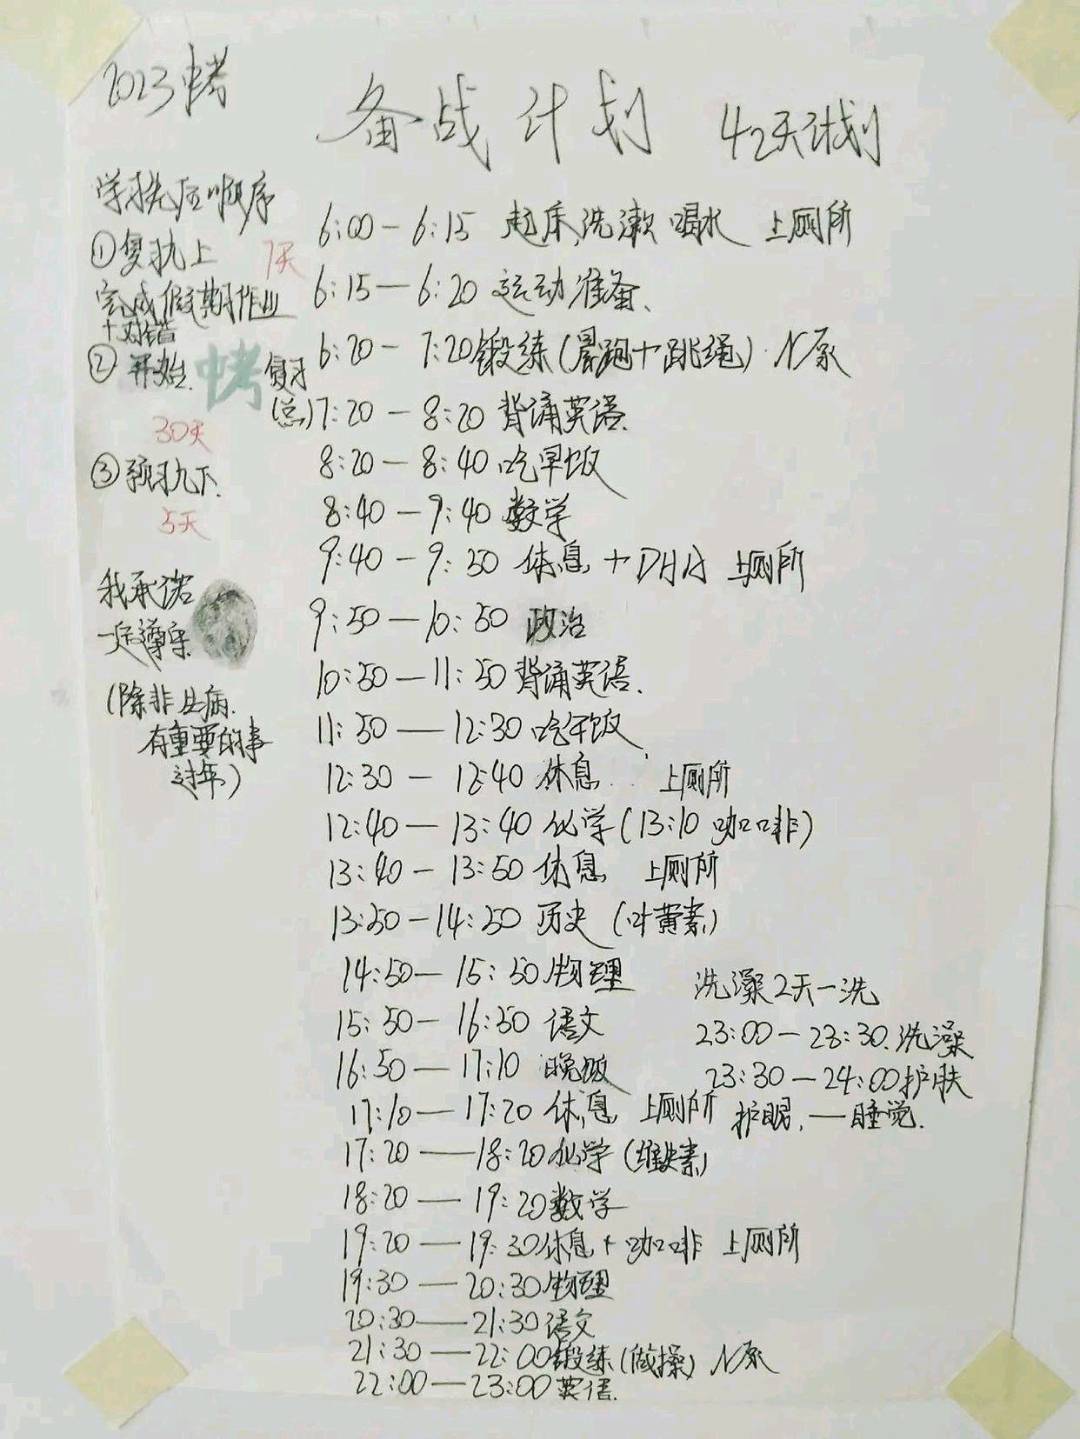 2023中考
备战计划 42天计划
学习先后顺序
①复习九上 7天
完成假期作业
+对错
②开始 中考 复习
(总)
30天
③预习九下.
5天
我承诺
一定遵守.
(除非生病.
有重要的事
过年)
6:00-6:15 起床,洗漱 喝水 上厕所
6:15-6:20 运动准备.
6:20-7:20 锻炼(晨跑+跳绳)
7:20-8:20 背诵英语.
8:20-8:40 吃早饭
8:40-9:40 数学
9:40-9:50 休息+DHA 上厕所
9:50-10:50 政治
10:50-11:50 背诵英语.
11:50-12:30 吃午饭
12:30-12:40 休息 上厕所
12:40-13:40 化学(13:10 咖啡)
13:40-13:50 休息 上厕所
13:50-14:50 历史(叶黄素)
14:50-15:50 物理
15:50-16:50 语文
16:50-17:10 晚饭
17:10-17:20 休息 上厕所
17:20-18:20 化学(维 素)
18:20-19:20 数学
19:20-19:30 休息+咖啡 上厕所
19:30-20:30 物理
20:30-21:30 语文
21:30-22:00 锻炼(做操)
22:00-23:00 英语.
洗澡2天一洗
23:00-23:30.洗澡
23:30-24:00 护肤
护眼.—睡觉.